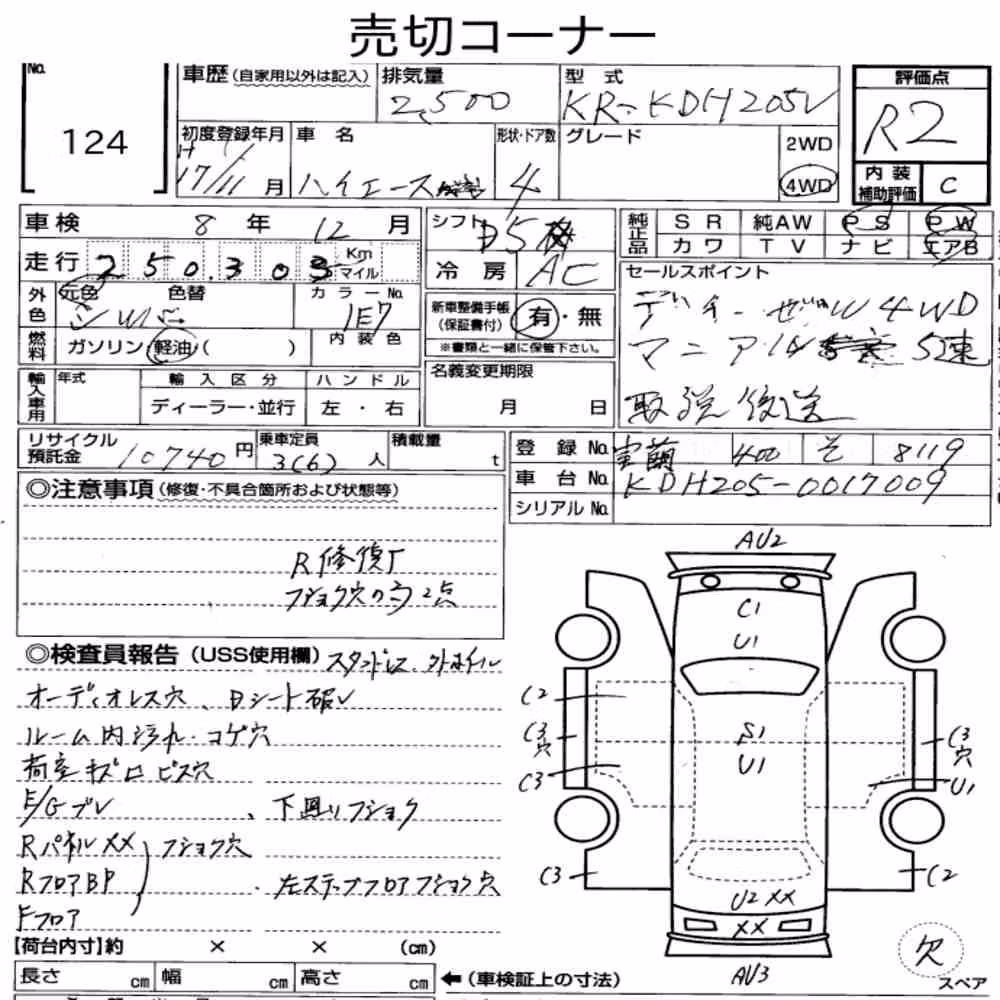 売切コーナー
No. 124
車歴 (自家用以外は記入) 排気量 2,500 型式 KR-KDH205V
評価点 R2
内装補助評価 C
初度登録年月 H17/11月 車名 ハイエース 形状・ドア数 4 グレード 2WD 4WD
車検 8年 12月
走行 250,303 Km マイル
外色 元色 色替 カラーNo. 1E7
シルバー
内装色
燃料 ガソリン 軽油 ( )
輸入車用 年式 輸入区分 ハンドル
ディーラー・並行 左・右
シフト 5
冷房 AC
新車整備手帳(保証書付) 有・無
※書類と一緒に保管下さい。
名義変更期限
月 日
純正品 SR 純AW PS PW
カワ TV ナビ エアB
セールスポイント
ディーゼル 4WD
マニアル 5速
取説後送
リサイクル預託金 10740円 乗車定員 3(6)人 積載量 t
登録No. 室蘭 400 そ 8119
車台No. KDH205-0017009
シリアルNo.
◎注意事項 (修復・不具合箇所および状態等)
R修復有
フショク穴の為2点
◎検査員報告 (USS使用欄) スタッドレス、外ホイル
オーディオレス穴、Dシート破レ
ルーム内汚れ・コゲ穴
荷室キズ凹ビス穴
E/Gブレ、下廻りフショク
RパネルXX フショク穴
RフロアBP、左ステップフロアフショク穴
Fフロア
AU2
C1
U1
C2
C3
穴
S1
U1
C3
穴
C3
U1
C3
C2
U2 XX
XX
AU3
欠
スペア
【荷台内寸】約 × × (cm)
長さ cm 幅 cm 高さ cm ←(車検証上の寸法)